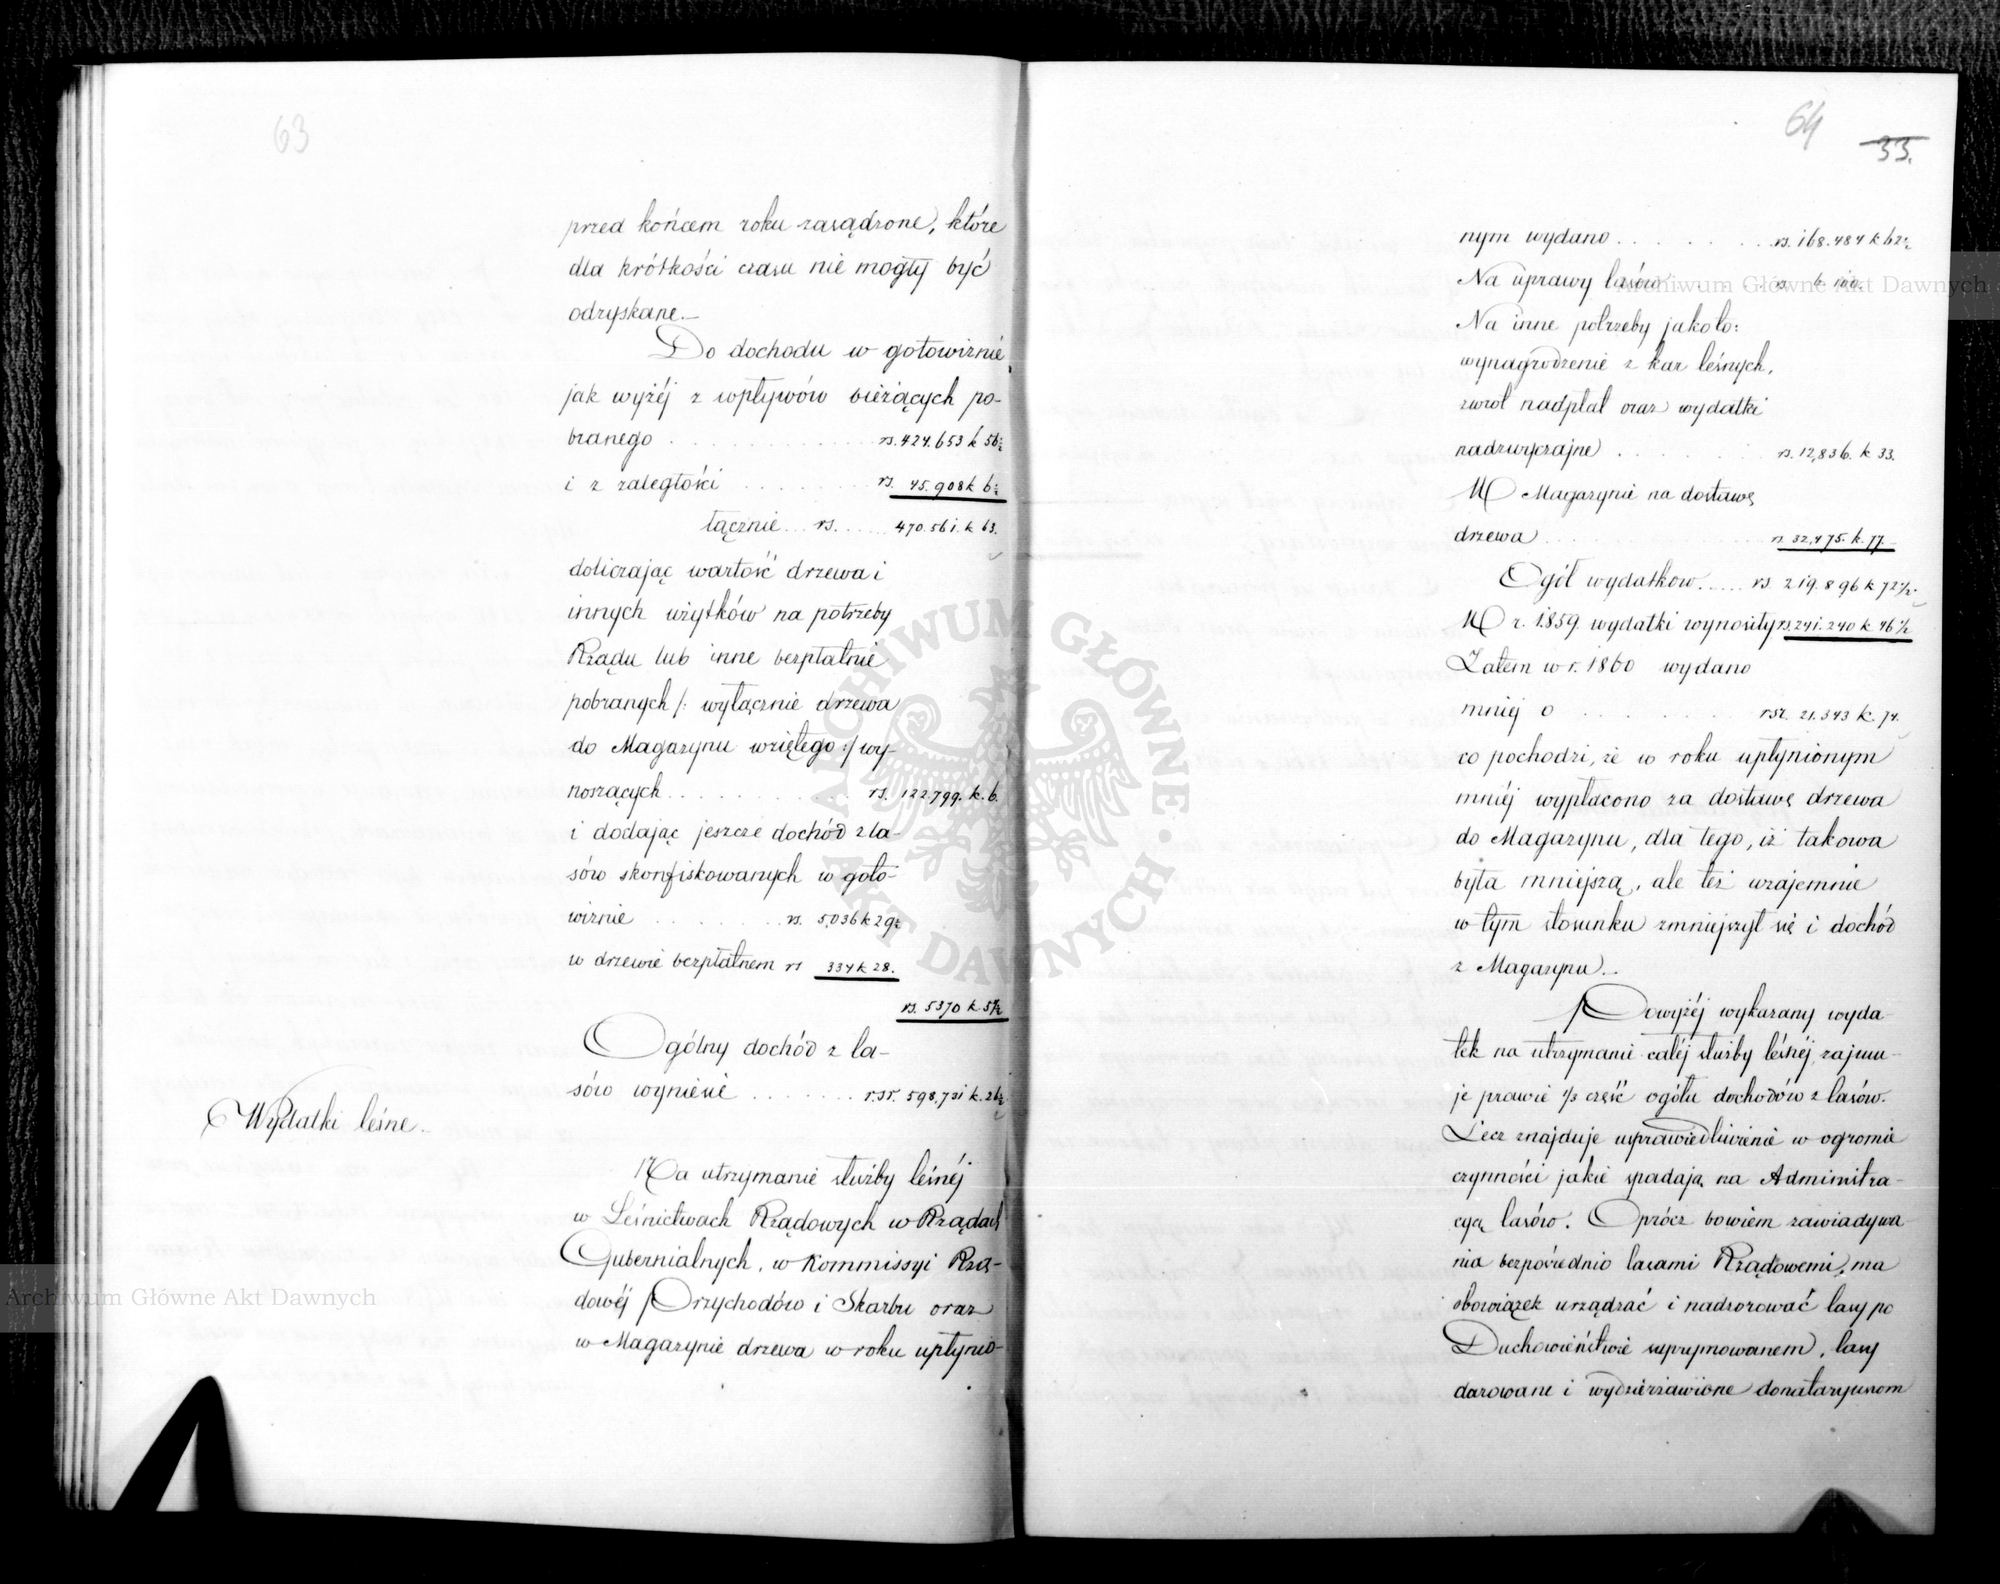 63
przed końcem roku zasądzone, które
dla krótkości czasu nie mogły być
odzyskane.—
Do dochodu w gotowiznie
jak wyżéj z wpływów bieżących po-
branego . . . . . rs. 424.653 k 56½
i z zaległości . . . . . rs. 45.908 k 6½
łącznie . . . rs. . . . . 470.561. k 63.
doliczając wartość drzewa i
innych użytków na potrzeby
Rządu lub inne bezpłatnie
pobranych /: wyłącznie drzewa
do Magazynu wziętego :/ wy-
noszących . . . . . rs. 122.799. k. 6.
i dodając jeszcze dochód z la-
sów skonfiskowanych w goto-
wiznie . . . . . rs. 5,036 k 29½
w drzewie bezpłatnem rs 334 k 28.
rs. 5370 k. 57½
Ogólny dochód z la-
sów wyniesie . . . . . rsr. 598,731 k. 26½
Wydatki leśne.
Na utrzymanie służby leśnéj
w Leśnictwach Rządowych w Rządach
Gubernialnych, w Kommissyi Rzą-
dowéj Przychodów i Skarbu oraz
w Magazynie drzewa w roku upłynio-
64
33.
nym wydano . . . . . rs. 168.484 k 62½
Na uprawy lasów . . . . rs. 6 100.
Na inne potrzeby jakoto:
wynagrodzenie z kar leśnych,
zwrot nadpłat oraz wydatki
nadzwyczajne . . . . . rs. 12,836. k 33.
W Magazynie na dostawę
drzewa . . . . . rs. 32,475. k. 77.
Ogół wydatków. . . . . rs. 219.896 k 72½.
W r. 1859. wydatki wynosiły rs. 241.240 k 46½
Zatem w r. 1860 wydano
mniéj o . . . . . rsr. 21.343 k. 74.
co pochodzi, że w roku upłynionym
mniéj wypłacono za dostawę drzewa
do Magazynu, dla tego, iż takowa
była mniejszą, ale też wzajemnie
w tym stosunku zmniejszył się i dochód
z Magazynu.—
Powyżéj wykazany wyda-
tek na utrzymanie całéj służby leśnéj, zajmu-
je prawie 1/3 część ogółu dochodów z lasów.
Lecz znajduje usprawiedliwienie w ogromie
czynności jakie spadają na Administra-
cyą lasów. Oprócz bowiem zawiadywa
nia bezpośrednio lasami Rządowemi, ma
obowiązek urządzać i nadzorować lasy po
Duchowieństwie supprymowanem, lasy
darowane i wydzierżawione donataryuszom
Archiwum Główne Akt Dawnych
Archiwum Główne Akt Dawnych
ARCHIWUM GŁÓWNE AKT DAWNYCH